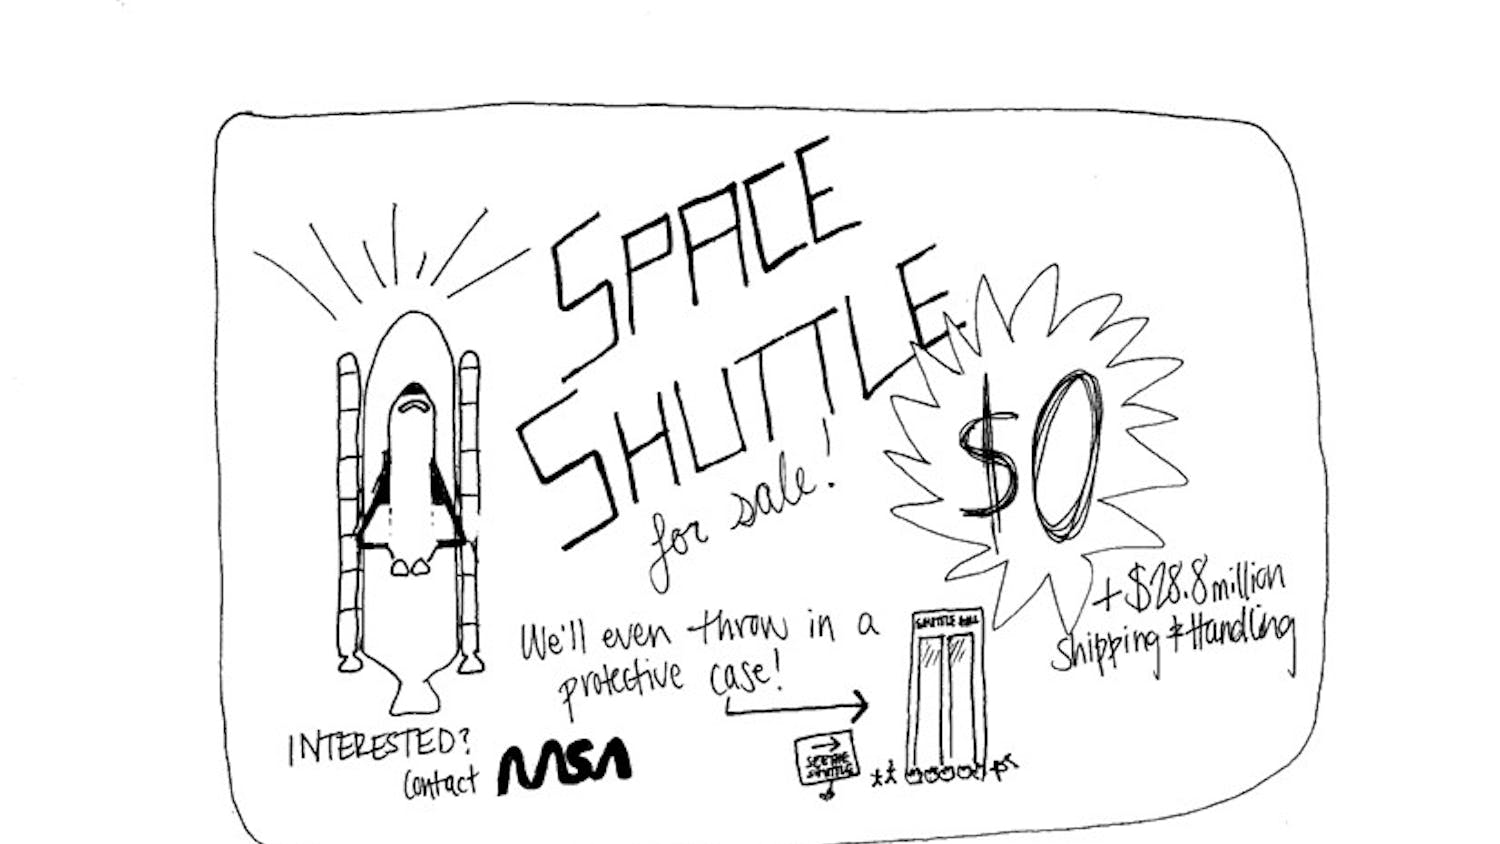 SPACE
SHUTTLE
for sale!
$0
+ $28.8 million
Shipping & Handling
We'll even throw in a
protective case!
SHUTTLE HALL
SEE THE
SHUTTLE
INTERESTED?
Contact
NASA